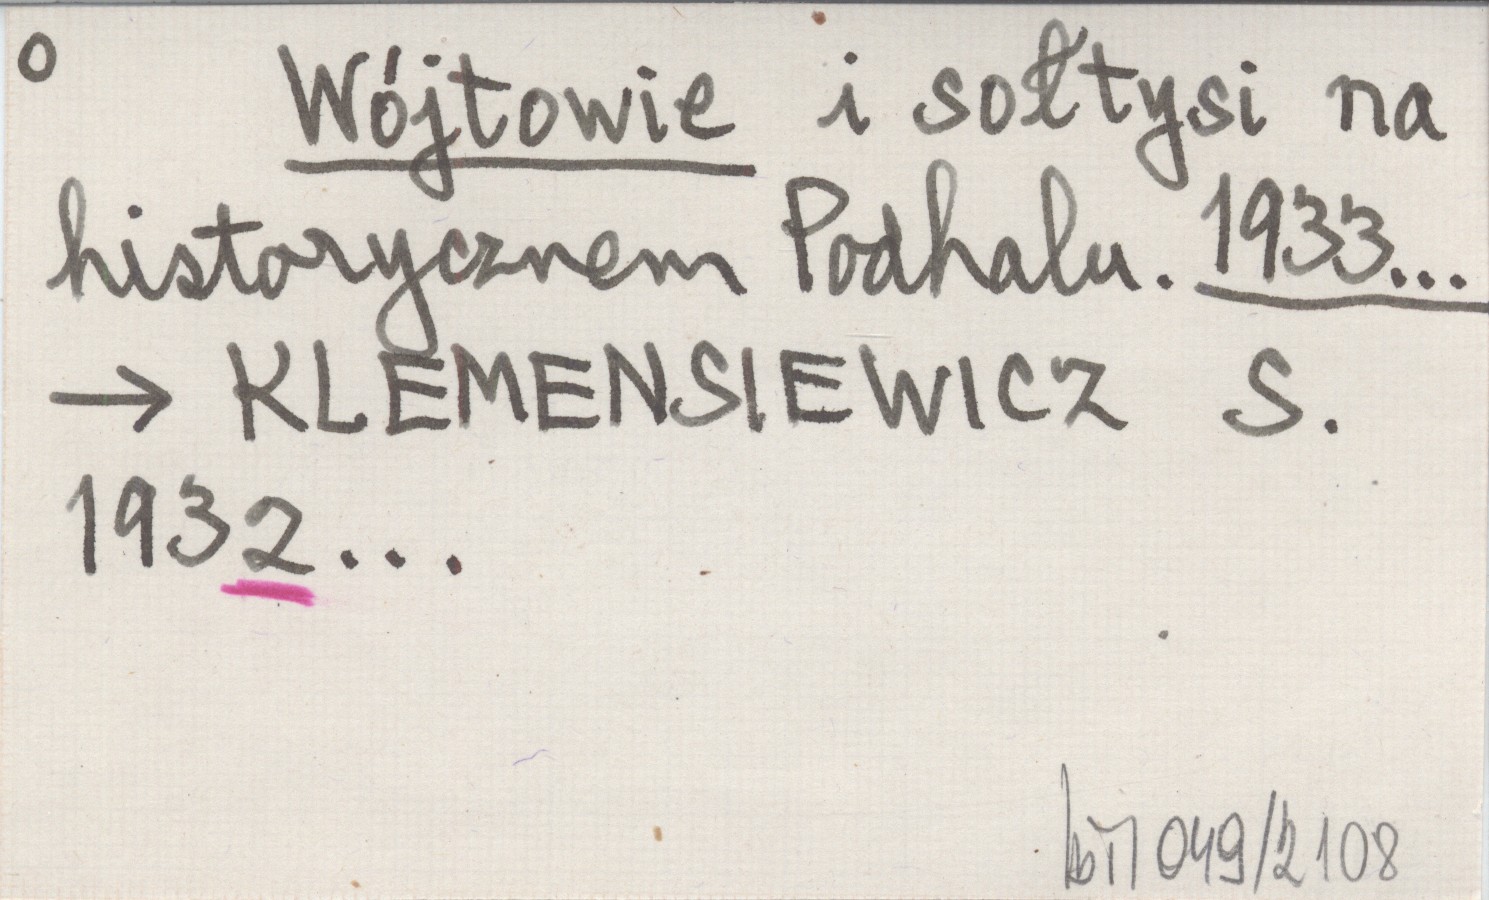 o Wójtowie i sołtysi na
historycznem Podhalu. 1933...
→ KLEMENSIEWICZ S.
1932...
049/2108